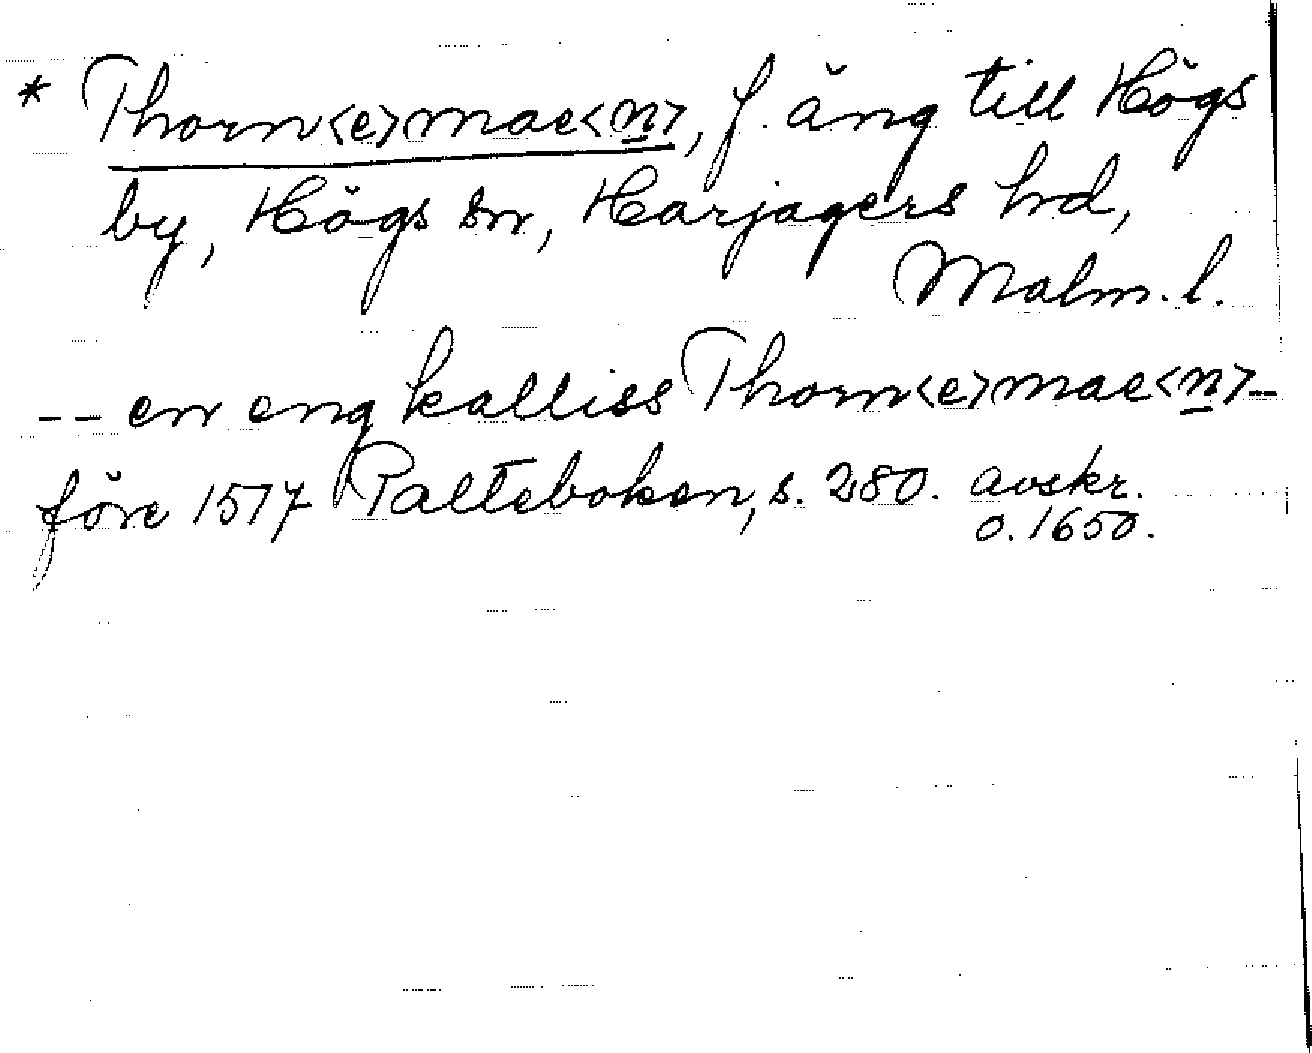 * Thorn<e>mae<n>, f. äng till Högs
by, Högs sn, Harjagers hd,
Malm. l.
-- en eng kalliss Thorn<e>mae<n>--
före 1517 Palteboken, s. 280. avskr.
o. 1650.